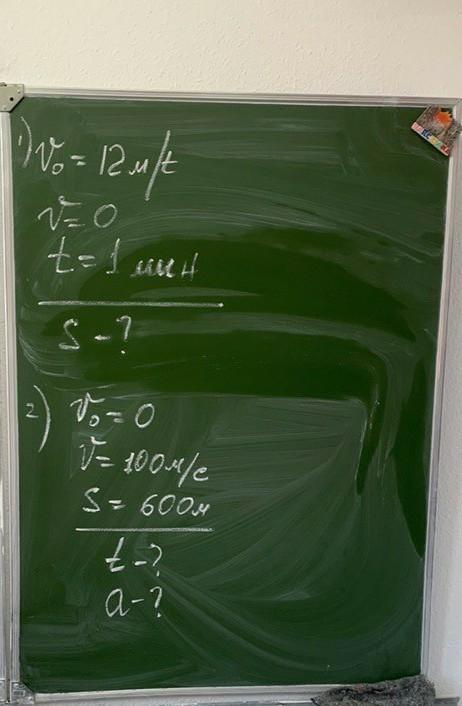 1) v₀ = 12 м/t
v = 0
t = 1 мин
s - ?
2) v₀ = 0
v = 100 м/с
s = 600 м
t - ?
a - ?